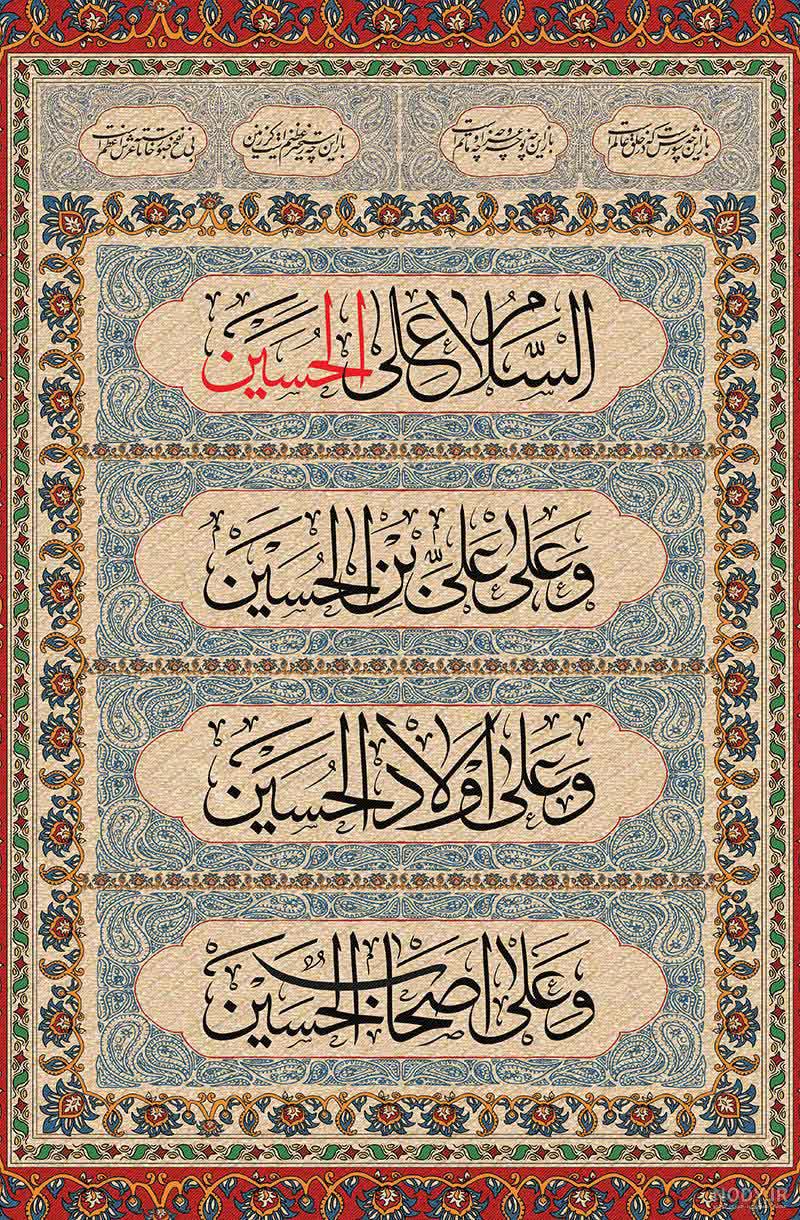 باز این چه شورش است که در خلق عالم است
باز این چه نوحه و چه عزا و چه ماتم است
باز این چه رستخیز عظیم است کز زمین
بی نفخ صور خاسته تا عرش اعظم است
السلام علی الحسین
وعلی علی بن الحسین
وعلی اولاد الحسین
وعلی اصحاب الحسین
NODY.IR